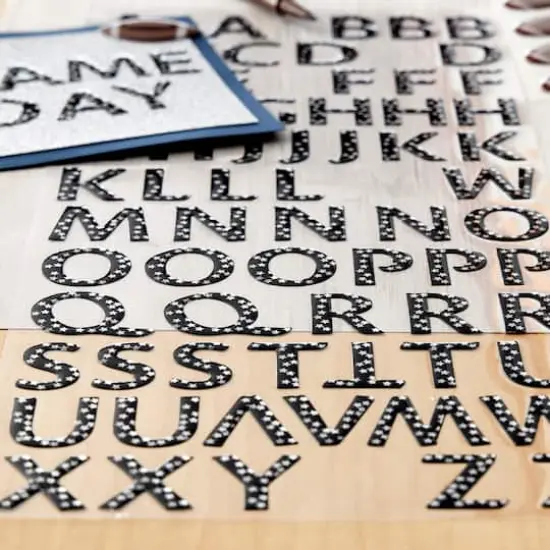 AME
DAY
A B B B
C D D
F F F
G H H H H
J J K K
K L L L W
M N N N N O
O O O P P P
Q Q R R R
S S S T ⊥ T U
U U Λ V M W
X X Y Z